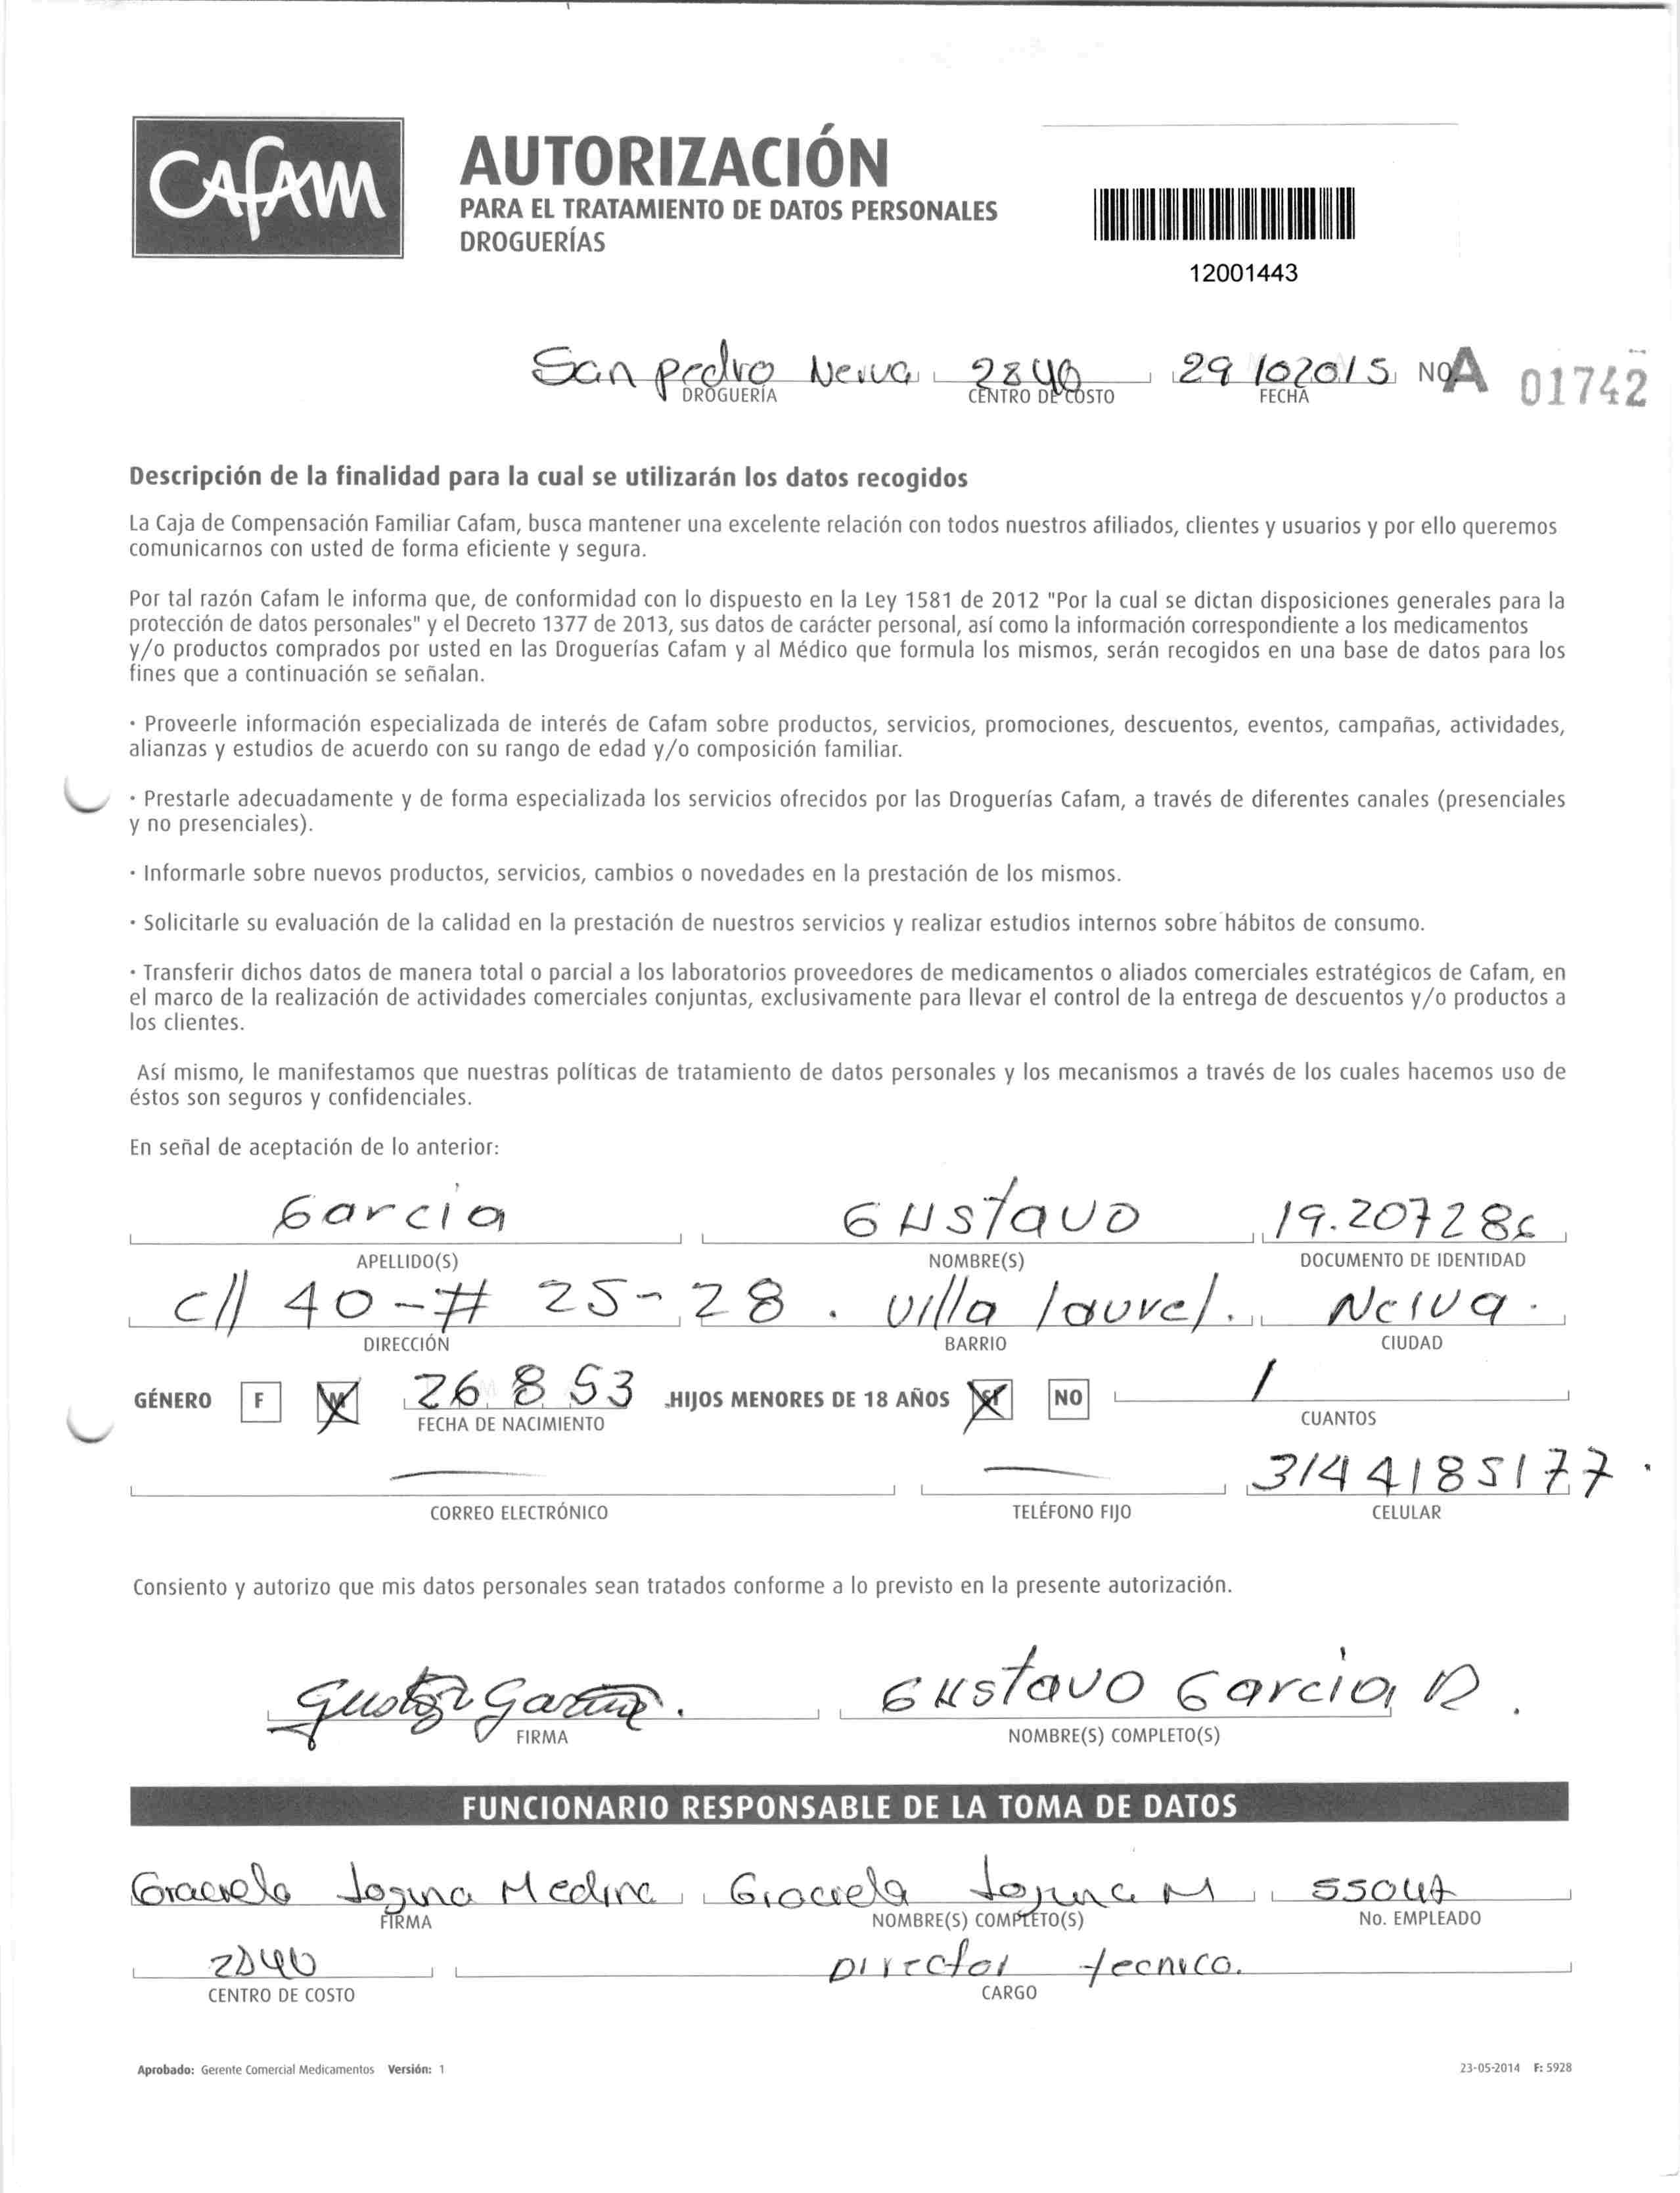 CAFAM
AUTORIZACIÓN
PARA EL TRATAMIENTO DE DATOS PERSONALES
DROGUERÍAS
12001443
San pedro Neiva 2840 29 102015 NO A 01742
DROGUERÍA CENTRO DE COSTO FECHA
Descripción de la finalidad para la cual se utilizarán los datos recogidos
La Caja de Compensación Familiar Cafam, busca mantener una excelente relación con todos nuestros afiliados, clientes y usuarios y por ello queremos
comunicarnos con usted de forma eficiente y segura.
Por tal razón Cafam le informa que, de conformidad con lo dispuesto en la Ley 1581 de 2012 "Por la cual se dictan disposiciones generales para la
protección de datos personales" y el Decreto 1377 de 2013, sus datos de carácter personal, así como la información correspondiente a los medicamentos
y/o productos comprados por usted en las Droguerías Cafam y al Médico que formula los mismos, serán recogidos en una base de datos para los
fines que a continuación se señalan.
· Proveerle información especializada de interés de Cafam sobre productos, servicios, promociones, descuentos, eventos, campañas, actividades,
alianzas y estudios de acuerdo con su rango de edad y/o composición familiar.
· Prestarle adecuadamente y de forma especializada los servicios ofrecidos por las Droguerías Cafam, a través de diferentes canales (presenciales
y no presenciales).
· Informarle sobre nuevos productos, servicios, cambios o novedades en la prestación de los mismos.
· Solicitarle su evaluación de la calidad en la prestación de nuestros servicios y realizar estudios internos sobre hábitos de consumo.
· Transferir dichos datos de manera total o parcial a los laboratorios proveedores de medicamentos o aliados comerciales estratégicos de Cafam, en
el marco de la realización de actividades comerciales conjuntas, exclusivamente para llevar el control de la entrega de descuentos y/o productos a
los clientes.
Así mismo, le manifestamos que nuestras políticas de tratamiento de datos personales y los mecanismos a través de los cuales hacemos uso de
éstos son seguros y confidenciales.
En señal de aceptación de lo anterior:
Garcia Gustavo 19.207286
APELLIDO(S) NOMBRE(S) DOCUMENTO DE IDENTIDAD
cll 40 - # 25 - 28 . Villa laurel. Neiva.
DIRECCIÓN BARRIO CIUDAD
GÉNERO F M 26 8 53 HIJOS MENORES DE 18 AÑOS SI NO 1
FECHA DE NACIMIENTO CUANTOS
3144185177.
CORREO ELECTRÓNICO TELÉFONO FIJO CELULAR
Consiento y autorizo que mis datos personales sean tratados conforme a lo previsto en la presente autorización.
Gustavo Garcia R.
FIRMA NOMBRE(S) COMPLETO(S)
FUNCIONARIO RESPONSABLE DE LA TOMA DE DATOS
Graciela Medina Graciela M
FIRMA NOMBRE(S) COMPLETO(S) No. EMPLEADO
2840 Director tecnico.
CENTRO DE COSTO CARGO
Aprobado: Gerente Comercial Medicamentos Versión: 1 23-05-2014 F: 5928